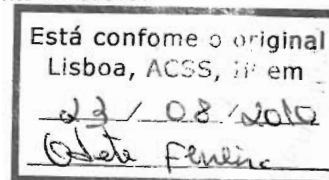 Está confome o original
Lisboa, ACSS, IP em
23 / 08 / 2010
Odete Ferreira